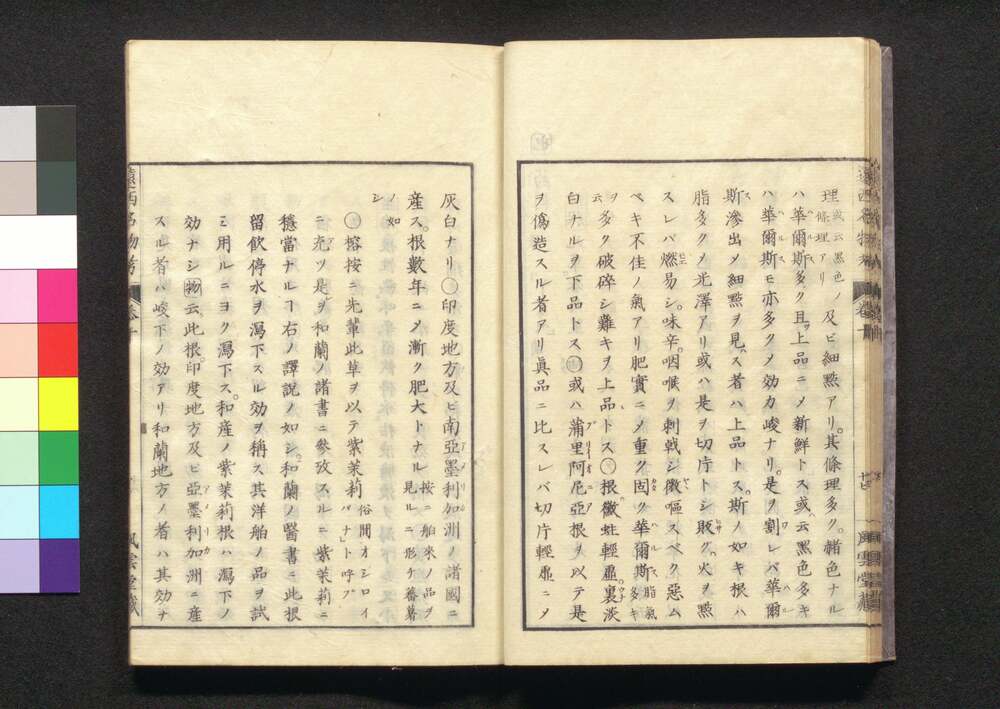 理或云黒色ノ條理アリ及ビ細㸃アリ。其條理多ク。赭色ナル
ハ華爾斯多ク且上品ニ〆新鮮トス或云黒色多キ
ハ華爾斯モ亦多ク〆効力峻ナリ。是ヲ割レバ華爾
斯滲出〆細㸃ヲ見ス者ハ上品トス。斯ノ如キ根ハ
脂多ク〆光澤アリ或ハ是ヲ切片トシ燉グ火ヲ㸃
スレバ燃易シ。味辛。咽喉ヲ刺戟シ微嘔スベク惡ム
ベキ不佳ノ氣アリ肥實ニ〆重ク固ク華爾斯脂氣多キ
ヲ云多ク破碎シ難キヲ上品トス○根黴蛀輕虛。裏淡
白ナルヲ下品トス○或ハ蒲里阿尼亞根ヲ以テ是
ヲ僞造スル者アリ眞品ニ比スレバ切片輕虛ニ〆
灰白ナリ○印度地方及ビ南亞墨利加洲ノ諸國ニ
産ス。根數年ニ〆漸ク肥大トナル按ニ舶來ノ品ヲ見ルニ形ケ番薯
ノ如シ
○榕按ニ先輩此草ヲ以テ紫茉莉俗間オシロイバナト呼ブ
ニ充ツ是ヲ和蘭ノ諸書ニ參攷スルニ紫茉莉ニ
穏當ナルヿ右ノ譯説ノ如シ和蘭ノ醫書ニ此根
留飲停水ヲ瀉下スル効ヲ稱ス其洋舶ノ品ヲ試
ミ用ルニヨク瀉下ス。和産ノ紫茉莉根ハ瀉下ノ
効ナシ物云此根。印度地方及ビ亞墨利加洲ニ産
スル者ハ峻下ノ効アリ和蘭地方ノ者ハ其効ナ
遠西名物考
卷十
風雲堂藏